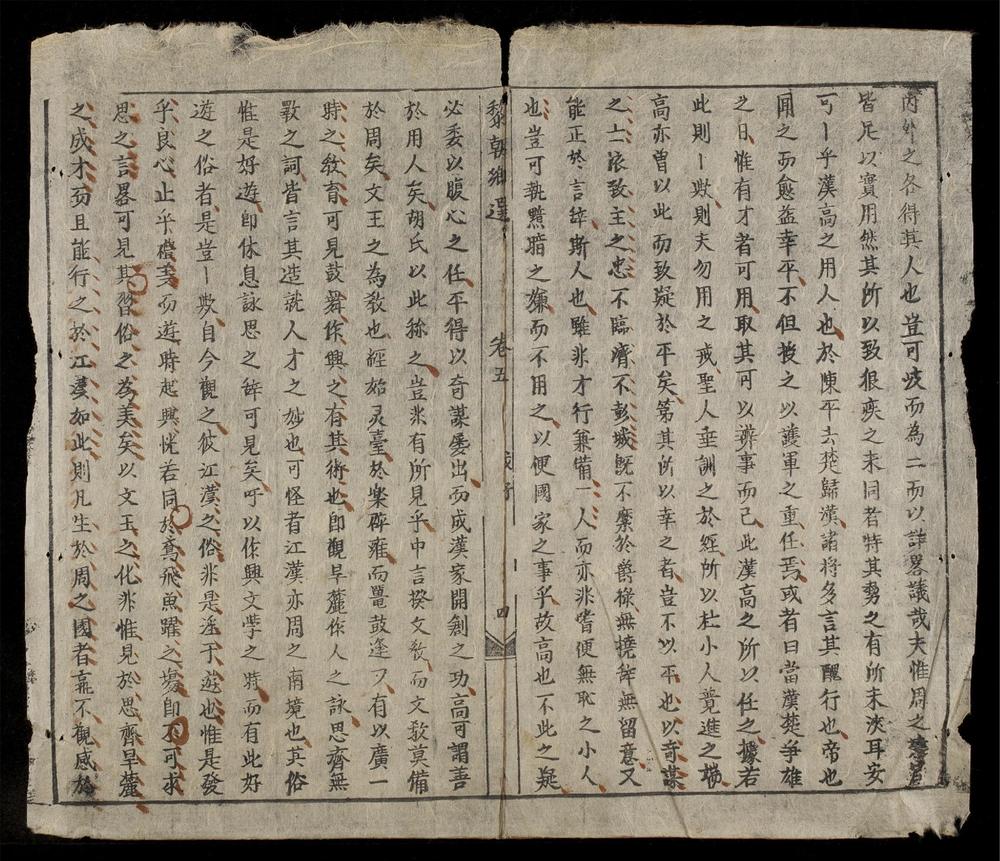 内外之各得其人也豈可歧而為二而以詐畧議哉夫惟周之
皆足以實用然其所以致狠疾之未同者特其勢之有所未浹耳安
可丨乎漢高之用人也於陳平去楚歸漢諸將多言其醜行也帝也
聞之而愈益幸平不但授之以護軍之重任焉或者曰當漢楚爭雄
之日惟有才者可用取其可以辦事而已此漢高之所以任之據若
此則丨歟則夫勿用之戒聖人垂訓之於經所以杜小人竟進之堦
高亦曾以此而致疑於平矣第其所以幸之者豈不以平也以奇謀
之士依致主之忠不臨濟不彭城既不縻於爵祿無撓辭無留意又
能正於言辭斯人也雖非才行兼備一人而亦非嗜便無恥之小人
也豈可執黯暗之嫌而不用之以便國家之事乎故高也不此之疑
黎朝鄉選 卷五 四
必委以腹心之任平得以奇謀屡出而成漢家開創之功高可謂善
於用人矣胡氏以此称之豈非有所見乎中言揆文敎而文敎莫備
於周矣文王之為敎也經始灵臺於楽辟雍而鼉鼓逢又有以廣一
時之敎育可見鼓舞作興之有其術也即觀旱麓作人之詠思齊無
斁之詞皆言其造就人才之妙也可怪者江漢亦周之南境也其俗
惟是好遊即休息詠思之辞可見矣吁以作興文学之時而有此好
遊之俗者是豈丨歟自今觀之彼江漢之俗非是淫于遊也惟是發
乎良心止乎禮美而遊時起興恍若同於鳶飛魚躍之場即不可求
思之言畧可見其習俗之為美矣以文王之化非惟見於思齊旱麓
之成才而且能行之於江漢如此則凡生於周之國者寧不觀感於